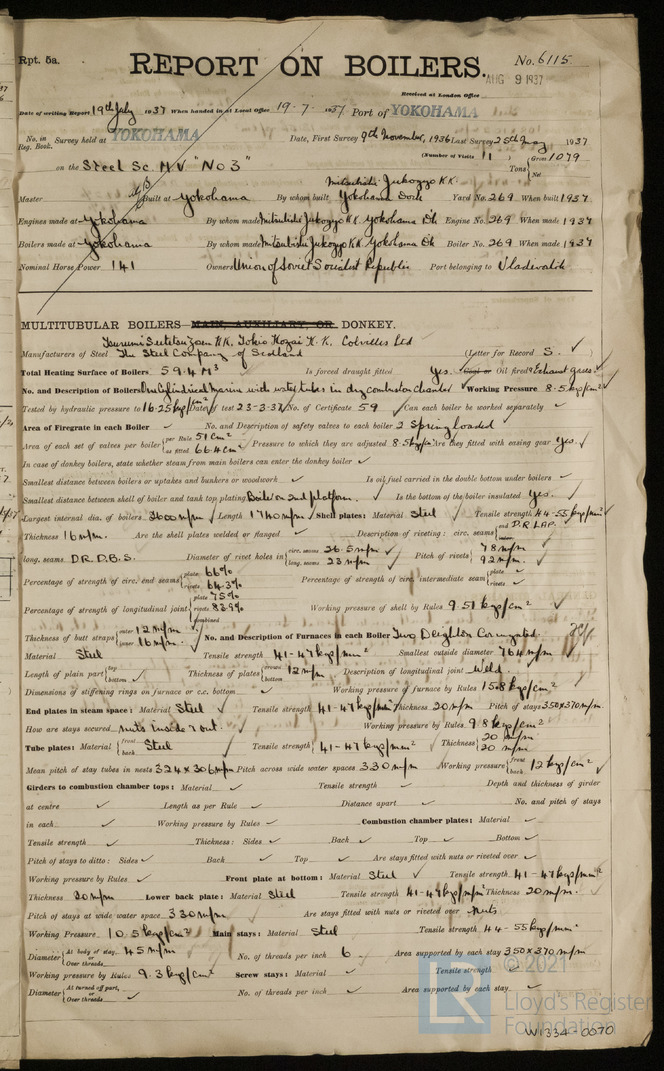 Rpt. 5a.
REPORT ON BOILERS.
No. 6115
AUG 9 1937
Received at London Office
Date of writing Report 19th July 1937 When handed in at Local Office 19.7.1937 Port of YOKOHAMA
No. in Reg. Book. Survey held at YOKOHAMA Date, First Survey 9th November, 1936 Last Survey 25th May 1937
(Number of Visits 11) Tons { Gross 1079 Net
on the Steel Sc. M V "No 3"
Master Built at Yokohama By whom built Mitsubishi Jukogyo K.K. Yokohama Dock Yard No. 269 When built 1937
Engines made at Yokohama By whom made Mitsubishi Jukogyo K.K. Yokohama Dk Engine No. 269 When made 1937
Boilers made at Yokohama By whom made Mitsubishi Jukogyo K.K. Yokohama Dk Boiler No. 269 When made 1937
Nominal Horse Power 141 Owners Union of Soviet Socialist Republic Port belonging to Vladivostok
MULTITUBULAR BOILERS MAIN, AUXILIARY, OR DONKEY.
Manufacturers of Steel The Steel Company of Scotland Colvilles Ltd (Letter for Record S. )
Total Heating Surface of Boilers 59.4 M² Is forced draught fitted Yes. Coal or Oil fired & Exhaust gases
No. and Description of Boilers One Cylindrical Marine with water tubes in dry combustion chamber Working Pressure 8.5 kg/cm²
Tested by hydraulic pressure to 16.25 kg/cm² Date of test 23-3-37 No. of Certificate 59 Can each boiler be worked separately
Area of Firegrate in each Boiler No. and Description of safety valves to each boiler 2 Spring loaded
Area of each set of valves per boiler { per Rule 51 cm² as fitted 66.4 cm² Pressure to which they are adjusted 8.5 kg/cm² Are they fitted with easing gear Yes.
In case of donkey boilers, state whether steam from main boilers can enter the donkey boiler
Smallest distance between boilers or uptakes and bunkers or woodwork Is oil fuel carried in the double bottom under boilers
Smallest distance between shell of boiler and tank top plating Boiler on 2nd platform. Is the bottom of the boiler insulated Yes.
Largest internal dia. of boilers 2600 m/m Length 1740 m/m Shell plates: Material Steel Tensile strength 44-55 kg/mm²
Thickness 16 m/m. Are the shell plates welded or flanged Description of riveting: circ. seams { end D.R. LAP. inter.
long. seams D.R.D.B.S. Diameter of rivet holes in { circ. seams 26.5 m/m long. seams 23 m/m Pitch of rivets { 78 m/m 92 m/m
Percentage of strength of circ. end seams { plate 66% rivets 64.3% Percentage of strength of circ. intermediate seam { plate rivets
Percentage of strength of longitudinal joint { plate 75% rivets 82.9% combined Working pressure of shell by Rules 9.51 kg/cm²
Thickness of butt straps { outer 12 m/m inner 16 m/m No. and Description of Furnaces in each Boiler Two Deighton Corrugated.
Material Steel Tensile strength 41-47 kg/mm² Smallest outside diameter 764 m/m
Length of plain part { top bottom Thickness of plates { crown bottom 12 m/m Description of longitudinal joint Weld.
Dimensions of stiffening rings on furnace or c.c. bottom Working pressure of furnace by Rules 15.8 kg/cm²
End plates in steam space: Material Steel Tensile strength 41-47 kg/mm² Thickness 20 m/m Pitch of stays 350 x 370 m/m.
How are stays secured nuts inside & out. Working pressure by Rules 9.8 kg/cm²
Tube plates: Material { front back Steel Tensile strength { 41-47 kg/mm² Thickness { 20 m/m 20 m/m
Mean pitch of stay tubes in nests 324 x 306 m/m Pitch across wide water spaces 330 m/m Working pressure { front back 12 kg/cm²
Girders to combustion chamber tops: Material Tensile strength Depth and thickness of girder
at centre Length as per Rule Distance apart No. and pitch of stays
in each Working pressure by Rules Combustion chamber plates: Material
Tensile strength Thickness: Sides Back Top Bottom
Pitch of stays to ditto: Sides Back Top Are stays fitted with nuts or riveted over
Working pressure by Rules Front plate at bottom: Material Steel Tensile strength 41-47 kg/mm²
Thickness 20 m/m Lower back plate: Material Steel Tensile strength 41-47 kg/mm² Thickness 20 m/m.
Pitch of stays at wide water space 330 m/m Are stays fitted with nuts or riveted over nuts
Working Pressure 10.5 kg/cm² Main stays: Material Steel Tensile strength 44-55 kg/mm²
Diameter { At body of stay, 45 m/m or Over threads No. of threads per inch 6 Area supported by each stay 350 x 370 m/m
Working pressure by Rules 9.3 kg/cm² Screw stays: Material Tensile strength
Diameter { At turned off part, or Over threads No. of threads per inch Area supported by each stay
© 2021
LR
Lloyd's Register
Foundation
W1334-0070